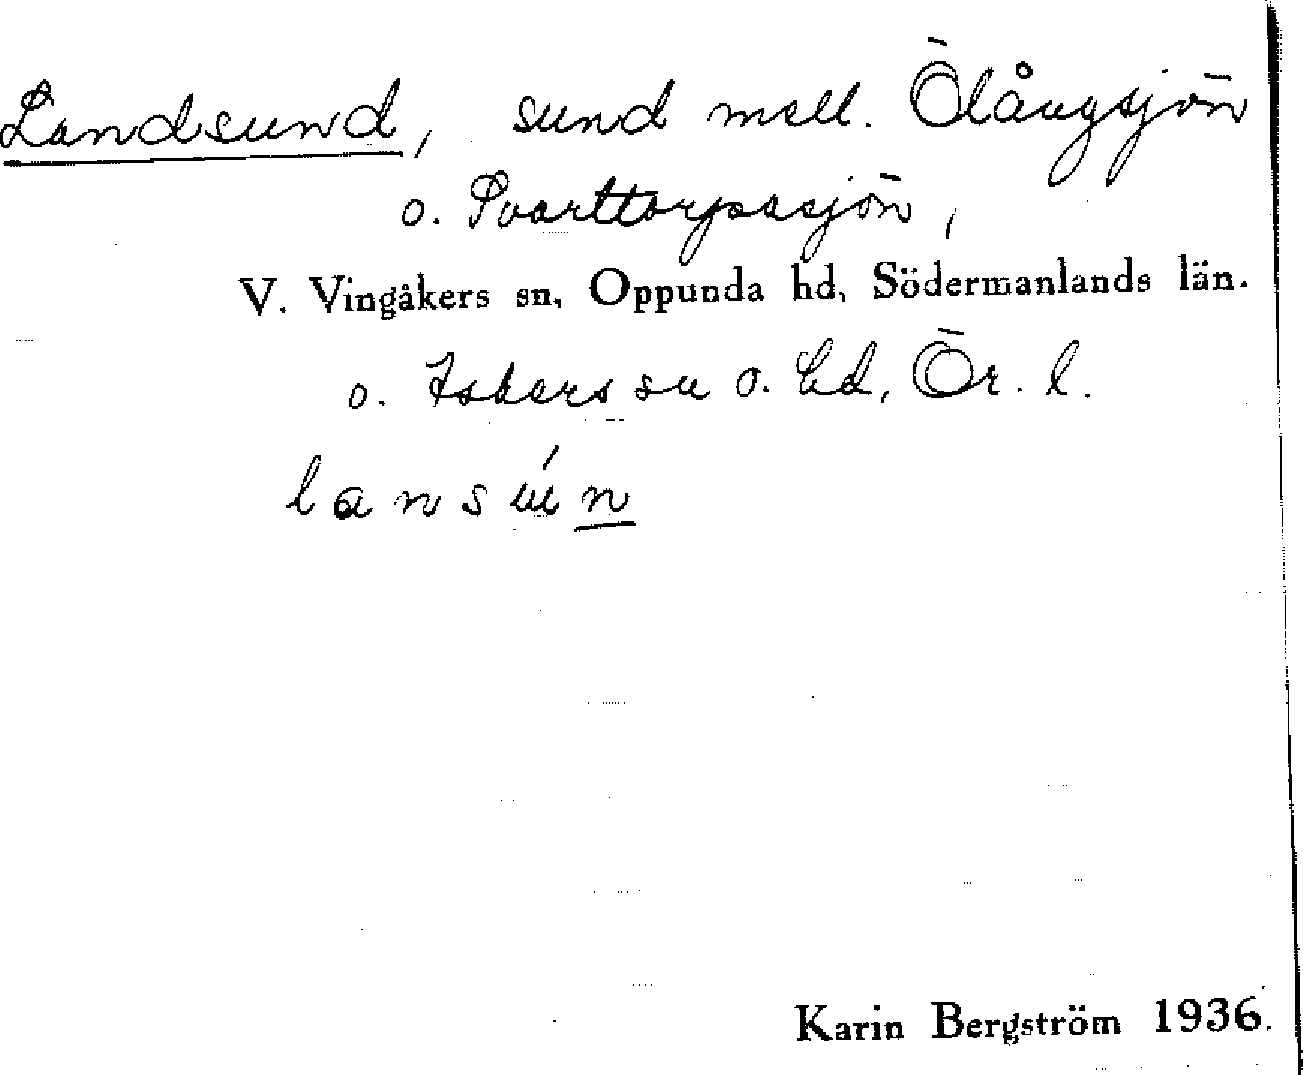 Landsund, sund mell. Ölångsjön
o. Svarttorpasjön,
V. Vingåkers sn, Oppunda hd, Södermanlands län.
o. Askers sn o. hd, Ör. l.
l a n s ú n
Karin Bergström 1936.